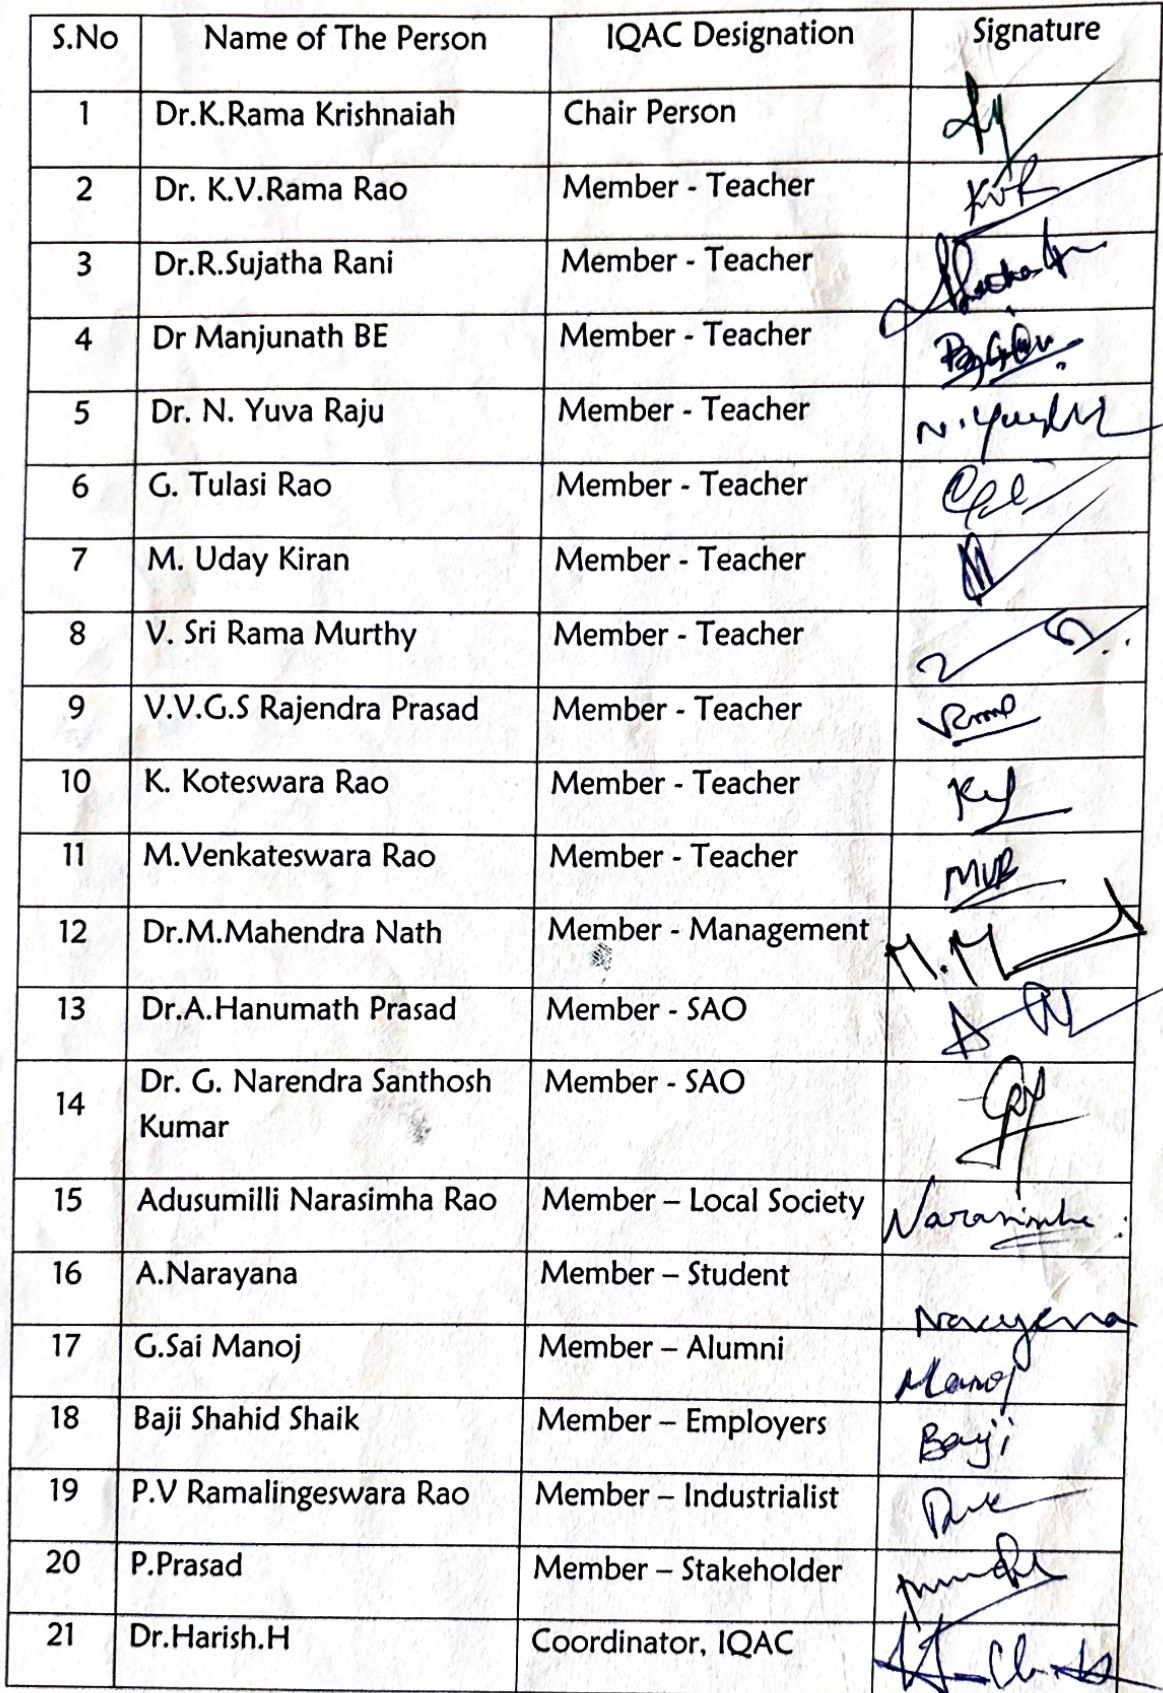 S.No Name of The Person IQAC Designation Signature
1 Dr.K.Rama Krishnaiah Chair Person
2 Dr. K.V.Rama Rao Member - Teacher KVR
3 Dr.R.Sujatha Rani Member - Teacher
4 Dr Manjunath BE Member - Teacher
5 Dr. N. Yuva Raju Member - Teacher
6 G. Tulasi Rao Member - Teacher
7 M. Uday Kiran Member - Teacher
8 V. Sri Rama Murthy Member - Teacher
9 V.V.G.S Rajendra Prasad Member - Teacher
10 K. Koteswara Rao Member - Teacher
11 M.Venkateswara Rao Member - Teacher MVR
12 Dr.M.Mahendra Nath Member - Management
13 Dr.A.Hanumath Prasad Member - SAO
14 Dr. G. Narendra Santhosh Member - SAO
Kumar
15 Adusumilli Narasimha Rao Member – Local Society Narasimha
16 A.Narayana Member – Student Narayana
17 G.Sai Manoj Member – Alumni Manoj
18 Baji Shahid Shaik Member – Employers Baji
19 P.V Ramalingeswara Rao Member – Industrialist
20 P.Prasad Member – Stakeholder
21 Dr.Harish.H Coordinator, IQAC